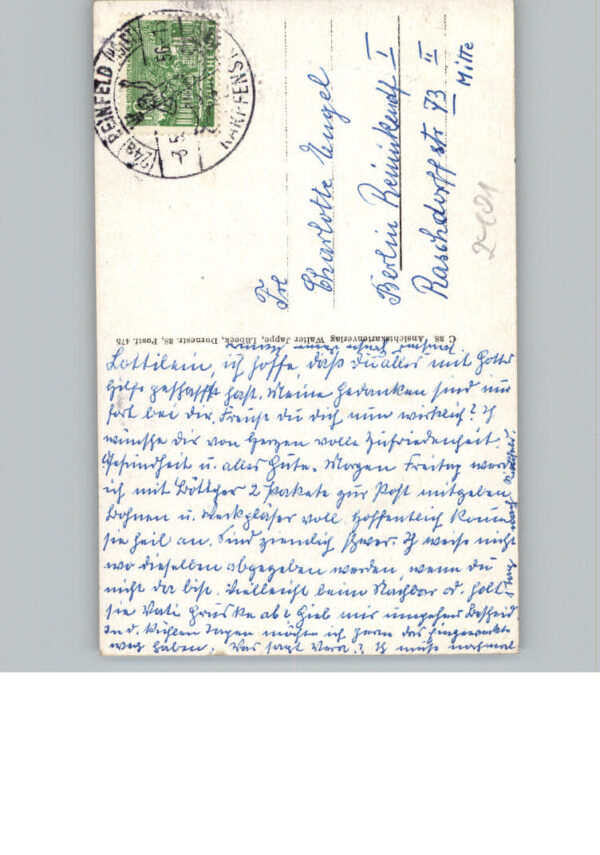 (24a) REINFELD (HOLST)
KARPFENS
Frl
Charlotte Engel
Berlin Reinickendorf I
Raschdorffstr. 73 II
Mitte
C 88 Ansichtskartenverlag Walter Jappe, Lübeck, Dornestr. 88, Postf. 475
Lottilein, ich hoffe, daß du alles mit Gottes
Hilfe geschafft hast. Meine Gedanken sind immer
fort bei dir. Freust du dich nun wirklich? Ich
wünsche dir von Herzen volle Zufriedenheit
Gesundheit u. alles Gute. Morgen Freitag werde
ich mit Böttcher 2 Pakete zur Post mitgeben
Bohnen u. Weckgläser voll. Hoffentlich kommen
sie heil an. Sind ziemlich schwer. Ich weiß nicht
wo dieselben abgegeben werden, wenn du
nicht da bist. Vielleicht beim Nachbar od. holt
sie Vati ab? Gieb mir umgehend Bescheid
In d. kühlen Tagen möchte ich gern das Eingeweckte
weg haben. Was sagt Vera? Ich muß nochmal